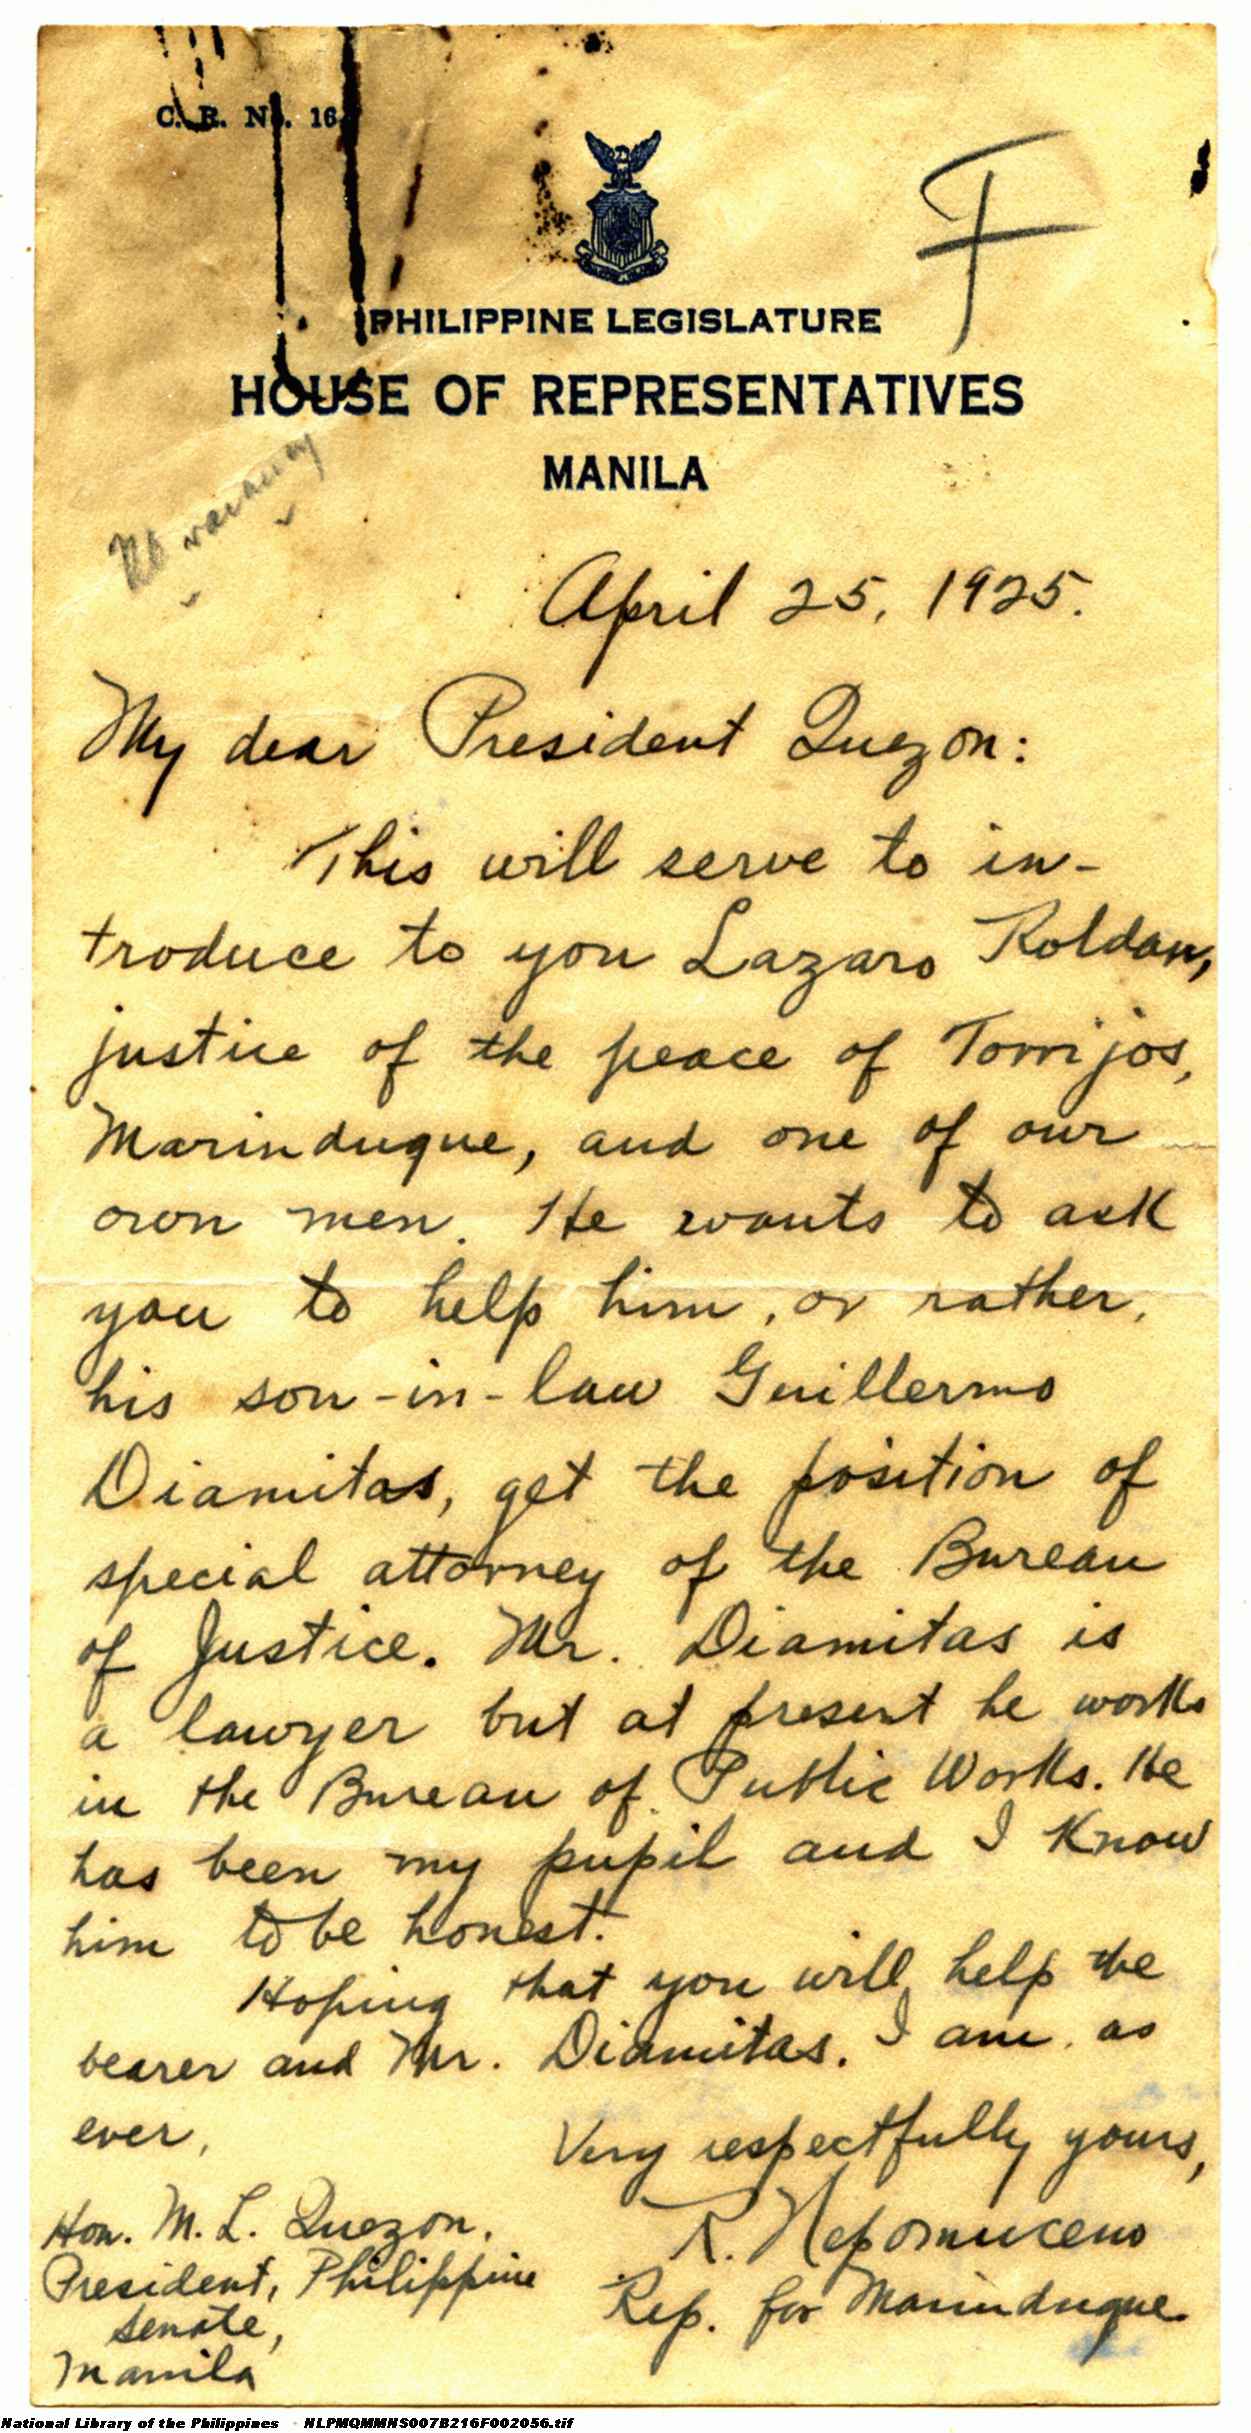 C. R. No. 16
F
PHILIPPINE LEGISLATURE
HOUSE OF REPRESENTATIVES
MANILA
No vacancy
April 25, 1925.
My dear President Quezon:
This will serve to in-
troduce to you Lazaro Roldan,
justice of the peace of Torrijos,
Marinduque, and one of our
own men. He wants to ask
you to help him, or rather,
his son-in-law Guillermo
Diamitas, get the position of
special attorney of the Bureau
of Justice. Mr. Diamitas is
a lawyer but at present he works
in the Bureau of Public Works. He
has been my pupil and I know
him to be honest.
Hoping that you will help the
bearer and Mr. Diamitas. I am as
ever,
Very respectfully yours,
R. Nepomuceno
Rep. for Marinduque
Hon. M. L. Quezon,
President, Philippine
Senate,
Manila
National Library of the Philippines - NLPMQMMNS007B216F002056.tif